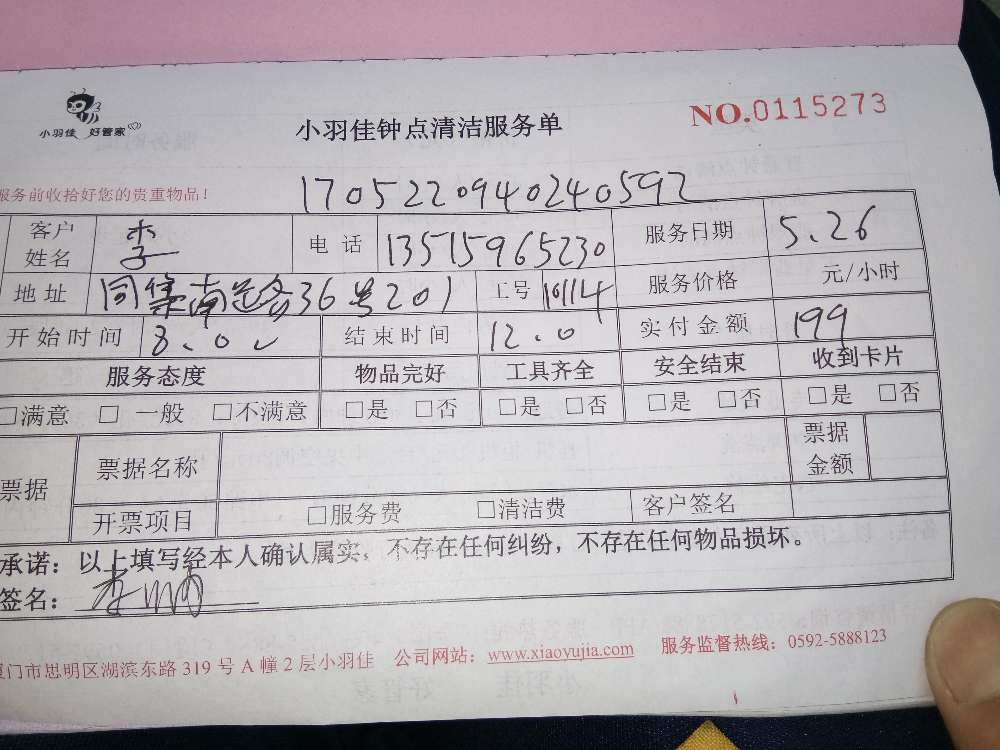 小羽佳 好管家
小羽佳钟点清洁服务单
NO.0115273
服务前收拾好您的贵重物品！
1705220940240592
客户姓名 李 电话 13515965230 服务日期 5.26
地址 同集南路36号201 工号 10114 服务价格 元/小时
开始时间 8.00 结束时间 12.0 实付金额 199
服务态度 物品完好 工具齐全 安全结束 收到卡片
□满意 □一般 □不满意 □是 □否 □是 □否 □是 □否 □是 □否
票据 票据名称 票据金额
开票项目 □服务费 □清洁费 客户签名
承诺：以上填写经本人确认属实，不存在任何纠纷，不存在任何物品损坏。
签名：李
厦门市思明区湖滨东路319号A幢2层小羽佳 公司网站：www.xiaoyujia.com 服务监督热线：0592-5888123